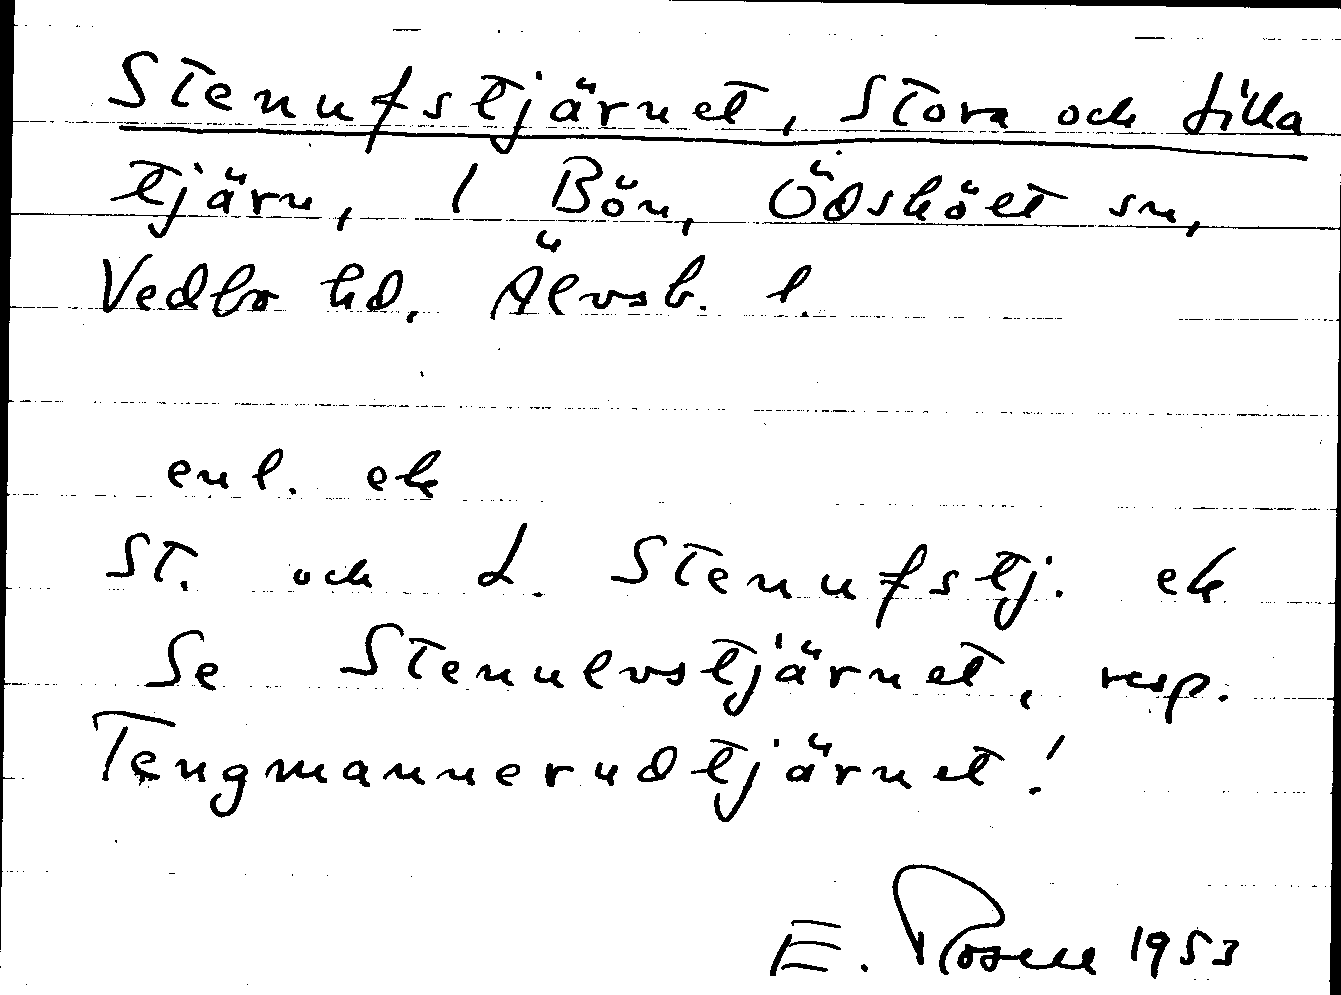 Stenufstjärnet, Stora och Lilla
tjärn, 1 Bön, Ödsköet sn,
Vedbo hd. Älvsb. l.
enl. ek
St. och L. Stenufstj. ek
Se Stenulvstjärnet, resp.
Tengmannerudtjärnet!
E. Rosell 1953